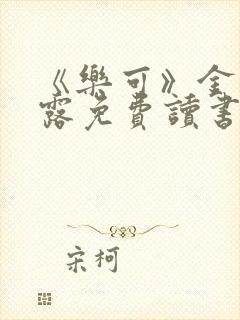 《樂可》金
露免費讀書
宋柯